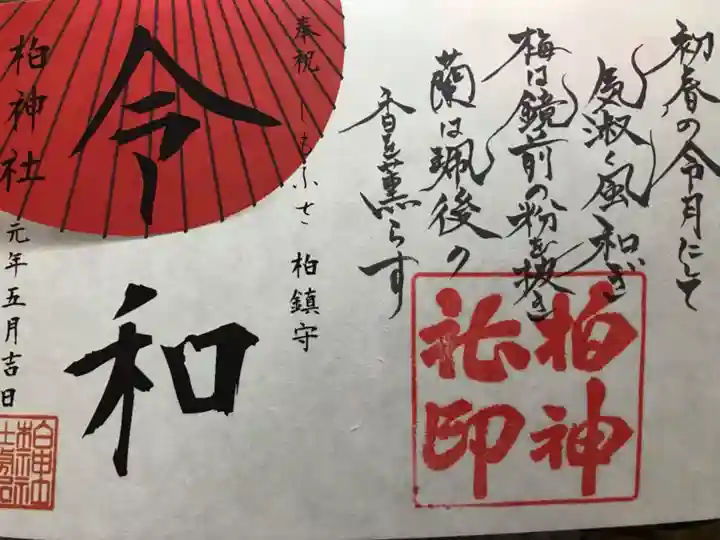 初春の令月にして
気淑く風和ぎ
梅は鏡前の粉を披き
蘭は珮後の
香を薫らす
柏神
社印
奉祝 しもふさ 柏鎮守
令和
柏神社
元年五月吉日
柏神社